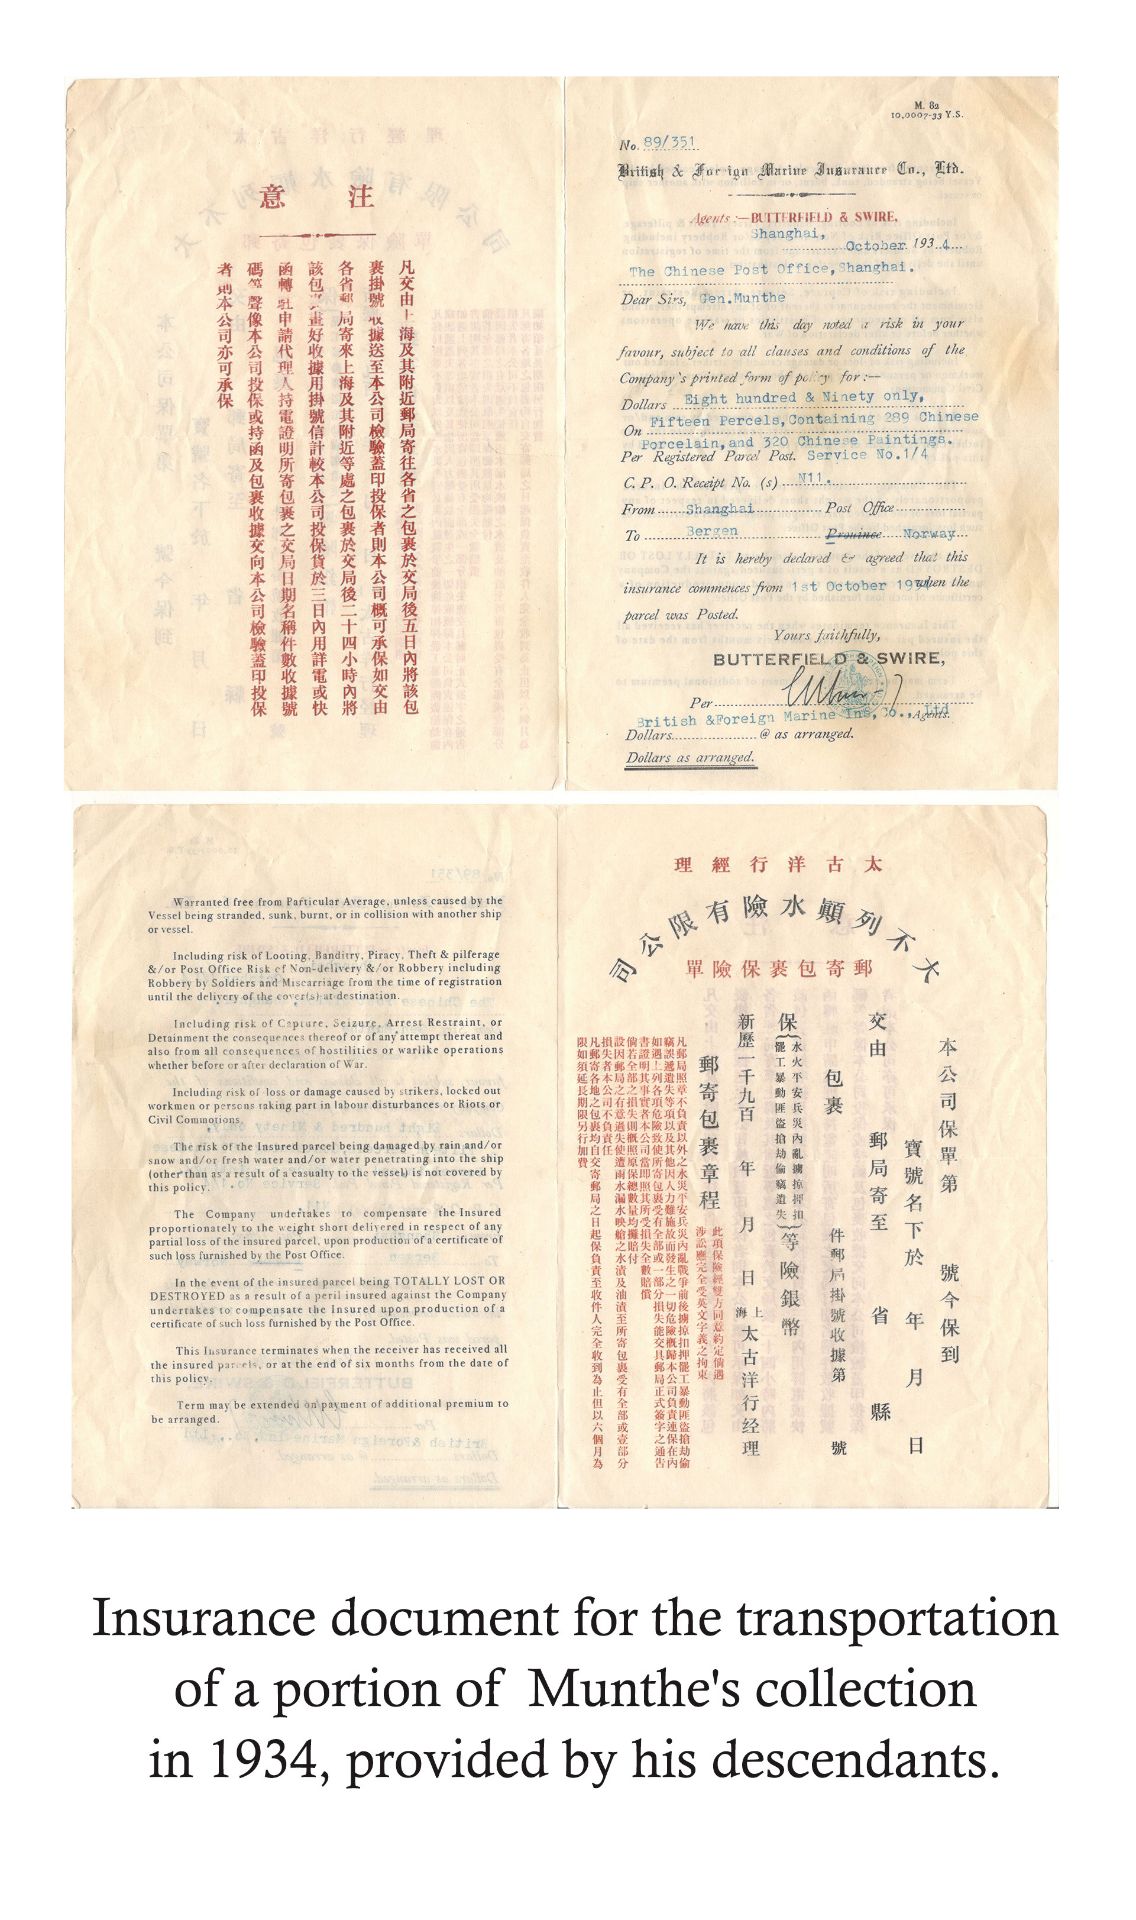 注意
凡交由上海及其附近郵局寄往各省之包裹於交局後五日內將該包
裹掛號收據送至本公司檢驗蓋印投保者則本公司概可承保如交由
各省郵局寄來上海及其附近等處之包裹於交局後二十四小時內將
該包裹畫好收據用掛號信計較本公司投保貨於三日內用詳電或快
函轉駐申請代理人持電證明所寄包裹之交局日期名稱件數收據號
碼等聲像本公司投保或持函及包裹收據交向本公司檢驗蓋印投保
者則本公司亦可承保
M. 82
10,0007-33 Y.S.
No. 89/351
British & Foreign Marine Insurance Co., Ltd.
Agents:—BUTTERFIELD & SWIRE,
Shanghai, October 1934
The Chinese Post Office, Shanghai.
Dear Sirs, Gen.Munthe
We have this day noted a risk in your
favour, subject to all clauses and conditions of the
Company's printed form of policy for:—
Dollars Eight hundred & Ninety only,
On Fifteen Percels, Containing 289 Chinese
Porcelain, and 320 Chinese Paintings.
Per Registered Parcel Post. Service No.1/4
C. P. O. Receipt No. (s) N11.
From Shanghai Post Office
To Bergen Province Norway
It is hereby declared & agreed that this
insurance commences from 1st October 1934 when the
parcel was Posted.
Yours faithfully,
BUTTERFIELD & SWIRE,
Per
British &Foreign Marine Ins, Co., Ltd Agents.
Dollars @ as arranged.
Dollars as arranged.
Warranted free from Particular Average, unless caused by the
Vessel being stranded, sunk, burnt, or in collision with another ship
or vessel.
Including risk of Looting, Banditry, Piracy, Theft & pilferage
&/or Post Office Risk of Non-delivery &/or Robbery including
Robbery by Soldiers and Miscarriage from the time of registration
until the delivery of the cover(s) at destination.
Including risk of Capture, Seizure, Arrest Restraint, or
Detainment the consequences thereof or of any attempt thereat and
also from all consequences of hostilities or warlike operations
whether before or after declaration of War.
Including risk of loss or damage caused by strikers, locked out
workmen or persons taking part in labour disturbances or Riots or
Civil Commotions.
The risk of the Insured parcel being damaged by rain and/or
snow and/or fresh water and/or water penetrating into the ship
(other than as a result of a casualty to the vessel) is not covered by
this policy.
The Company undertakes to compensate the Insured
proportionately to the weight short delivered in respect of any
partial loss of the insured parcel, upon production of a certificate of
such loss furnished by the Post Office.
In the event of the insured parcel being TOTALLY LOST OR
DESTROYED as a result of a peril insured against the Company
undertakes to compensate the Insured upon production of a
certificate of such loss furnished by the Post Office.
This Insurance terminates when the receiver has received all
the insured parcels, or at the end of six months from the date of
this policy.
Term may be extended on payment of additional premium to
be arranged.
太古洋行經理
大不列顛水險有限公司
郵寄包裹保險單
本公司保單第 號今保到
寶號名下於 年 月 日
交由 郵局寄至 省 縣
包裹 件郵局掛號收據第 號
保(水火平安兵災內亂擄掠押扣
罷工暴動匪盜搶劫偷竊遺失)等險銀幣
新歷一千九百 年 月 日 上海太古洋行经理
郵寄包裹章程
此項保險經雙方同意約定倘遇
涉訟應完全受英文字義之拘束
凡郵局照章不負責以外之水災平安兵災內亂戰爭前後擄掠扣押罷工暴動匪盜搶劫偷
竊誤遞遺失等項以及其他因人力難施故而發生之一切危險概歸本公司負責連保在內
如遇上列各項危險致使所寄包裹受有全部或一部分損失能交具郵局正式簽字之通告
書證明其事實者本公司當即照其所受損失全數賠償
倘若全部之損失則概照原保總數量均攤賠付
設因郵局之有意過失使遭雨水漏水映艙之水漬及油漬至所寄包裹受有全部或壹部分
損失者本公司不負責任
凡郵寄各地之包裹均自交寄郵局之日起保負責至收件人完全收到為止但以六個月為
限如須延長期限另行加費
Insurance document for the transportation
of a portion of Munthe's collection
in 1934, provided by his descendants.